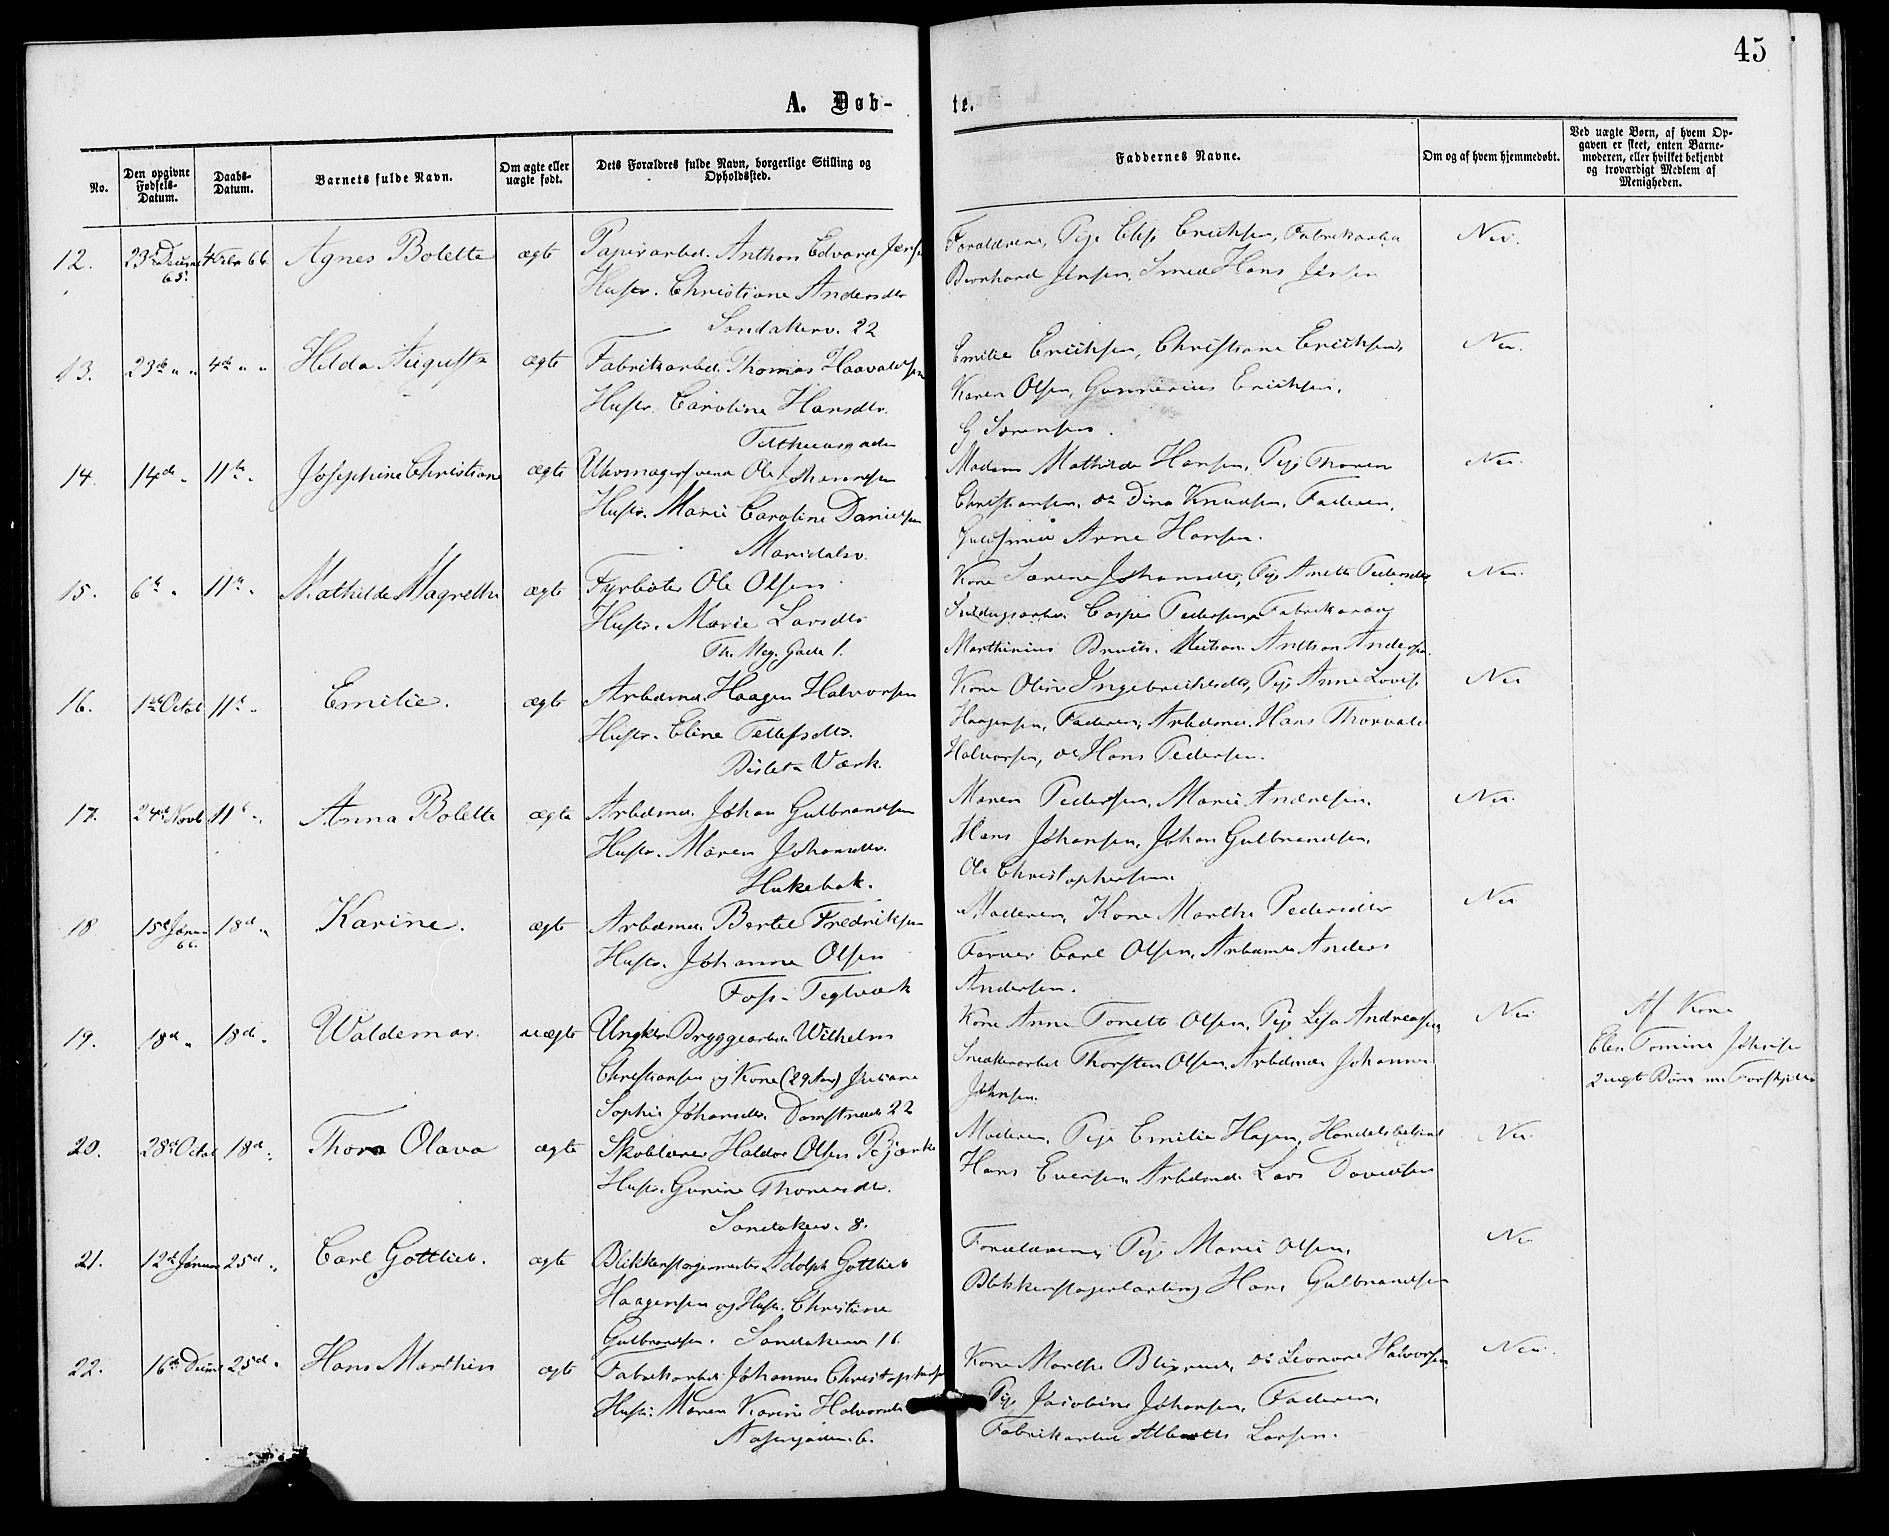 45
A. Døb-
te.
No.
Den opgivne Fødsels-Datum.
Daabs-Datum.
Barnets fulde Navn.
Om ægte eller uægte født.
Dets Forældres fulde Navn, borgerlige Stilling og Opholdssted.
Faddernes Navne.
Om og af hvem hjemmedøbt.
Ved uægte Børn, af hvem Opgaven er skeet, enten Barnemoderen, eller hvilket bekjendt og troværdigt Medlem af Menigheden.
12. Agnes Bolette ægte Papirarbd. Anthon Edvard
Hustr. Christiane Andersdtr
Sandakerv. 22
Forældrene, Pige Erichsen, Fabrikarbd
Bernhard Jensen, Smed Hans Jensen
Nei.
13. 23de " " 4de " " Hilda Augusta ægte Fabrikarbd. Thomas Haavaldsen
Hustr. Caroline Hansdtr.
Emilie Erichsen, Christiane Erichsen,
Karen Olsen, Gunnerius Erichsen,
G Sørensen.
Nei.
14. 14de " 11te " Josephine Christiane ægte Uhrmagersvend Ole Johannesen
Hustr. Marie Caroline Danielsen
Maridalsv.
Madam Mathilde Hansen, Pige Maren
Christiansen, og Dina Knudsen, Faderen,
Arne Hansen.
Nei.
15. 6te " 11te " Mathilde Magrethe ægte Fyrbøter Ole Olsen
Hustr. Marie Larsdtr
Th. Mey. Gade 1.
Kone Sørene Johansdtr, Pige Anette Pedersdtr
Casper Pedersen, Fabrikarbd
Marthinius Anderssen
Nei.
16. 1ste Octob 11te " Emilie. ægte Arbdmd. Haagen Halvorsen
Hustr. Eline Tellefsdtr.
Bislet Værk.
Kone Oline Ingebrichtsdtr, Pige Anne Lovise
Haagensen, Faderen, Arbdmd. Hans Thorvald
Halvorsen, og Hans Pedersen.
Nei
17. 24de Novb 11te " Anna Bolette ægte Arbdmd. Johan Gulbrandsen
Hustr. Maren Johansdtr.
Hukebak.
Maren Pedersen, Marie Andresen,
Hans Johansen, Johan Gulbrandsen,
Ole Christophersen.
Nei.
18 15de Januar 66. 18de " Karine. ægte Arbdmd. Bertel Fredriksen
Hustr. Johanne Olsen
Foss Teglværk
Moderen, Kone Marthe Pedersdtr
Farver Carl Olsen, Arbdmd Anders
Andersen.
Nei
19. 18de " 18de " Waldemar. uægte Ungkr. Bryggearbd. Wilhelm
Christiansen og Kone (29 Aar) Juliane
Sophie Johansdtr. Damstred 22
Kone Anne Tonette Olsen, Pige Lisa Andreasen
Snekkerarbd Thorsten Olsen, Arbdmd Johannes
Johnsen.
Nei
Af Kone
Elen Tomine Johnsen
2 uægt Børn
20. 28de Octob 18de " Thora Olava ægte Skolelærer Haldor Olsen Bjærke
Hustr. Gurine Thoresdtr.
Sandakerv. 8.
Moderen, Pige Emilie Hagen, Handelsbetjent
Hans Evensen, Arbdmd. Lars Davidsen
Nei.
21. 12te Januar 25de " Carl Gottlieb. ægte Blikkenslagermester Adolph Gottlieb
Haagensen og Hustr. Christine
Gulbrandsen. Sandakerv 16.
Forældrene, Pige Marie Olsen,
Blikkenslagerlærling Hans Gulbrandsen
Nei
22. 16de 25de " Hans Marthin ægte Fabrikarbd. Johannes Christophersen
Hustr. Maren Karine Halvorsdtr
6.
Kone Marthe og Leonore Halvorsen
Pige Jacobine Johansen, Faderen,
Fabrikarbd Larsen.
Nei.